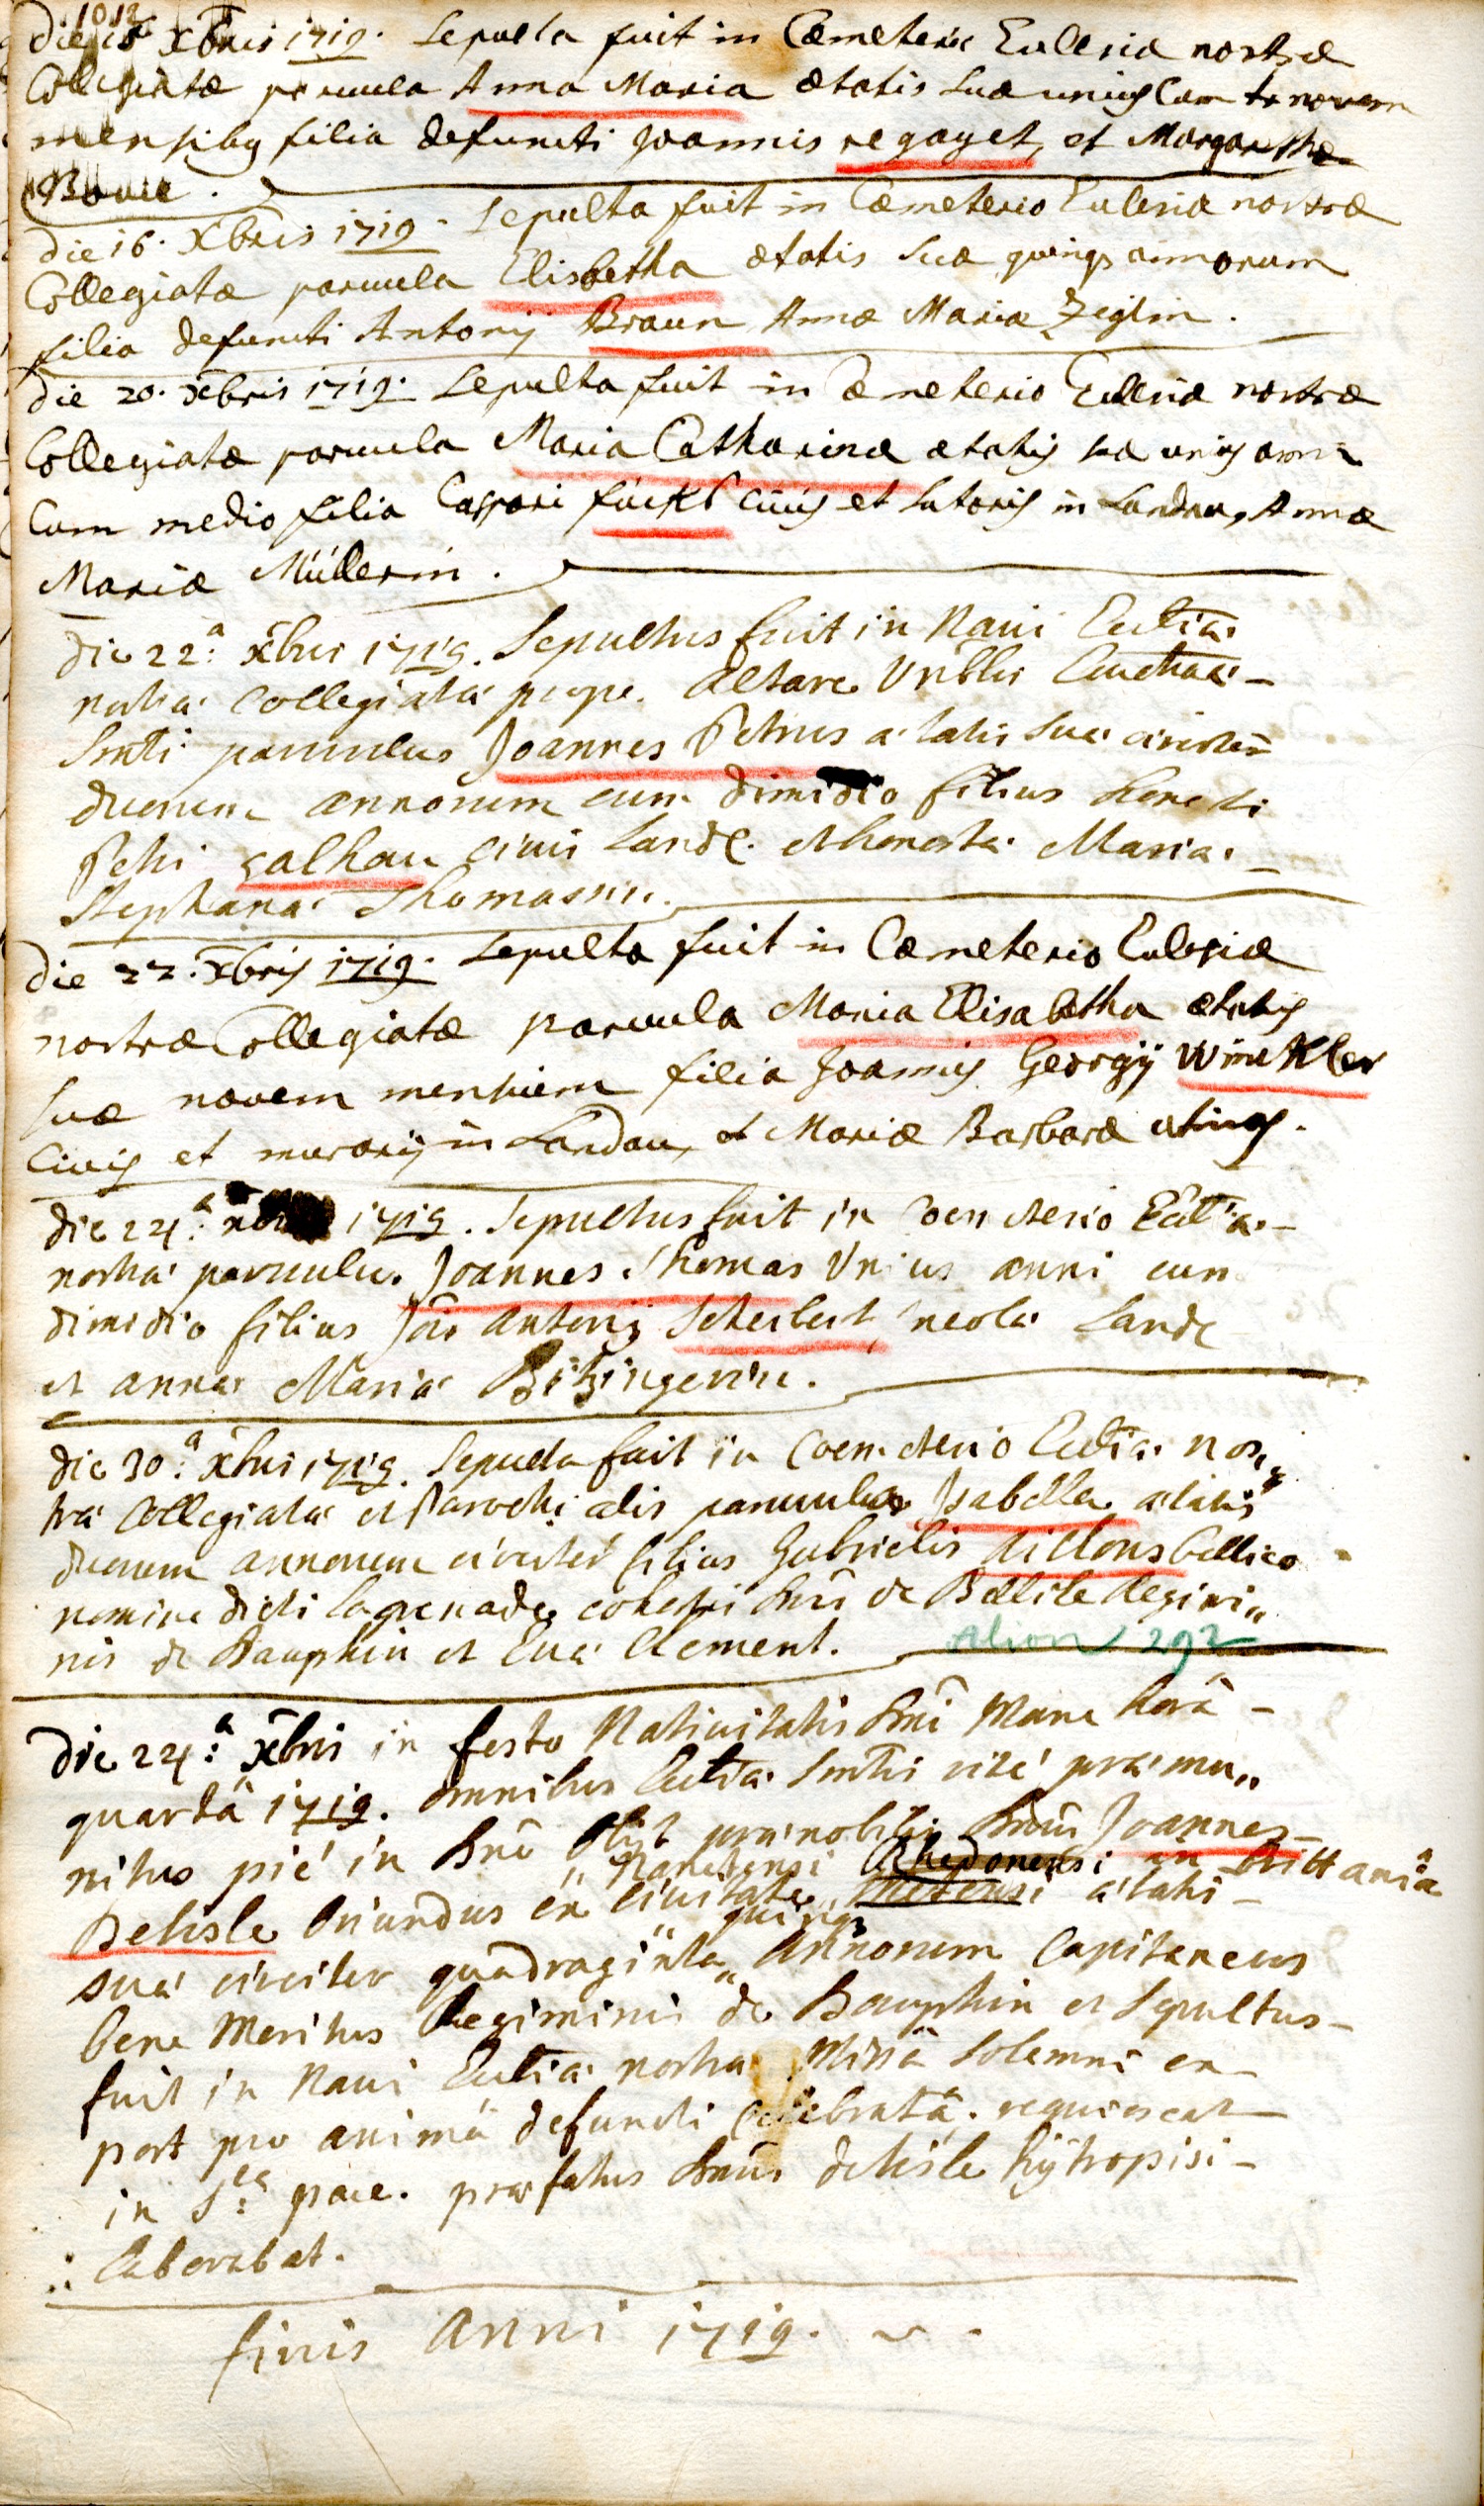 1012
Die 16 Xbris 1719. Sepulta fuit in Cæmeterio Ecclesiæ nostræ
Collegiatæ parvula Anna Maria ætatis suæ unius Cum novem
mensibus filia defuncti Joannis regayet, et Margarethæ
Die 16. Xbris 1719. Sepulta fuit in Cæmeterio Ecclesiæ nostræ
Collegiatæ parvula Elisbetha ætatis suæ quinqz annorum
filia defuncti Antonij Braun Annæ Mariæ Zeglin.
Die 20. Xbris 1719. Sepulta fuit in Cæmeterio Ecclesiæ nostræ
Collegiatæ parvula Maria Catharina ætatis suæ unius anni
Cum medio filia Caspari fucks civis et sutoris in Landau, Annæ
Mariæ Müllerin.
Die 22.ª Xbris 1719. Sepultus fuit in Navi Eccliæ
nostræ Collegiatæ prope Altare Vnbblis
parvulus Joannes Petrus ætatis suæ circiter
duorum annorum cum dimidio filius honesti
Petri galhau civis Land. et honestæ Mariæ
Stephanæ Thomassin.
Die 22. Xbris 1719. Sepulta fuit in Cæmeterio Ecclesiæ
nostræ Collegiatæ parvula Maria Elisabetha ætatis
suæ novem mensium filia Joannis Georgij Winckler
Civis et murarij in Landau, et Mariæ Barbaræ
Die 24.ª 1719. Sepultus fuit in Coemeterio Eccliæ
nostræ parvulus Joannes Thomas Vnius anni cum
dimidio filius Jois Antonij Scherbert incolæ Land
et annæ Mariæ Bitzingerin.
Die 30.ª Xbris 1719. Sepulta fuit in Coemeterio Eccliæ nos„
træ Collegiatæ et Parochialis parvula Isabella ætatis
duorum annorum circiter filius Gabrielis aillons bellico
nomine dicti lagrenade cohortis Dni de Bellile Regimi„
nis de Dauphin et Evæ Clement. Alion 292
Die 24.ª Xbris in festo Nativitatis Dni Mane horâ
quartâ 1719. omnibus Eccliæ Smtis rité præmu„
nitus pié in Dno Obijt prænobilis Dnus Joannes
„Nanetensi Rhedonensi in Brittaniâ
Delisle Oriundus ex civitate ætatis
quinqz
suæ circiter quadraginta„ Annorum Capitaneus
bene Meritus Regiminis de Dauphin et Sepultus
fuit in Navi Eccliæ nostræ Missâ Solemni en
post pro animâ defuncti Celebratâ. requiescat
in Sᶜᵃ: pace. præfatus Dnus delisle hijtropisi
laborabat.
finis Anni 1719.